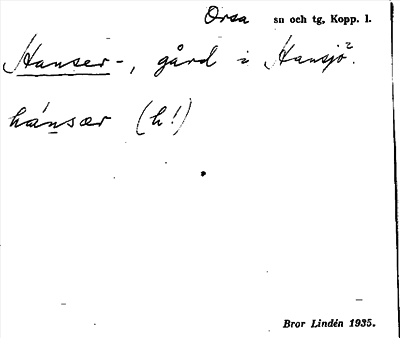 Orsa sn och tg, Kopp. l.
Hanser-, gård i Hansjö.
hánsær (h!)
Bror Lindén 1935.